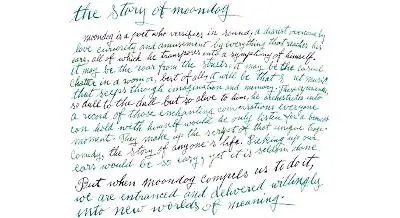 the Story of moondog
moondog is a poet who versifies in sound, a diarist overcome by
love curiosity and amusement by everything that reaches his
ears, all of which he transposes into a symphony of himself.
it may be the roar from the streets, it may be the casual
chatter in a room or, best of all, it will be that music
that seeps through imagination and memory. This
so dull to the dull but so alive to him, he orchestrates into
a record of those enchanting conversations everyone
can hold with himself would he only listen for a
moment. They make up the script of that unique
Comedy, the story of anyone's life. Picking up our
ears would be so easy, yet it is seldom done
But when moondog compels us to do it,
we are entranced and delivered willingly
into new worlds of meaning.